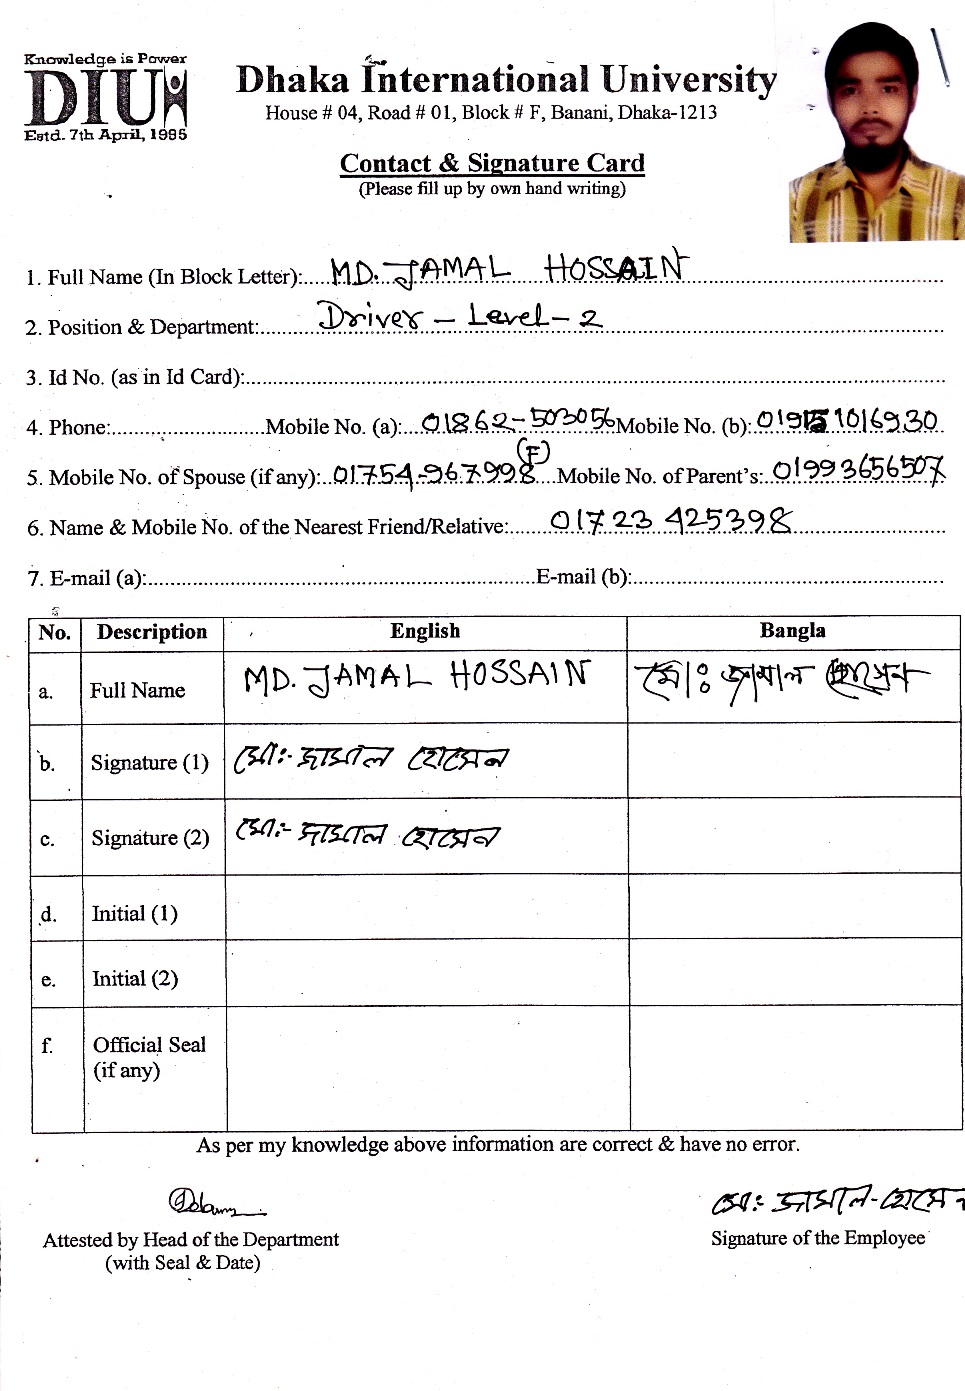 Knowledge is Power
DIU
Estd. 7th April, 1995
Dhaka International University
House # 04, Road # 01, Block # F, Banani, Dhaka-1213
Contact & Signature Card
(Please fill up by own hand writing)
1. Full Name (In Block Letter):.....MD. JAMAL HOSSAIN
2. Position & Department:..........Driver – Level – 2
3. Id No. (as in Id Card):
4. Phone:..........................Mobile No. (a):...01862-503056 Mobile No. (b): 01915 1016930
5. Mobile No. of Spouse (if any):..01754-967998 (F) Mobile No. of Parent's: 01993656507
6. Name & Mobile No. of the Nearest Friend/Relative:.......01723 425398
7. E-mail (a):..........E-mail (b):..........
No. Description English Bangla
a. Full Name MD. JAMAL HOSSAIN মোঃ জামাল হোসেন
b. Signature (1) মোঃ- জামাল হোসেন
c. Signature (2) মোঃ- জামাল হোসেন
d. Initial (1)
e. Initial (2)
f. Official Seal
(if any)
As per my knowledge above information are correct & have no error.
মোঃ জামাল-হোসেন
Attested by Head of the Department Signature of the Employee
(with Seal & Date)